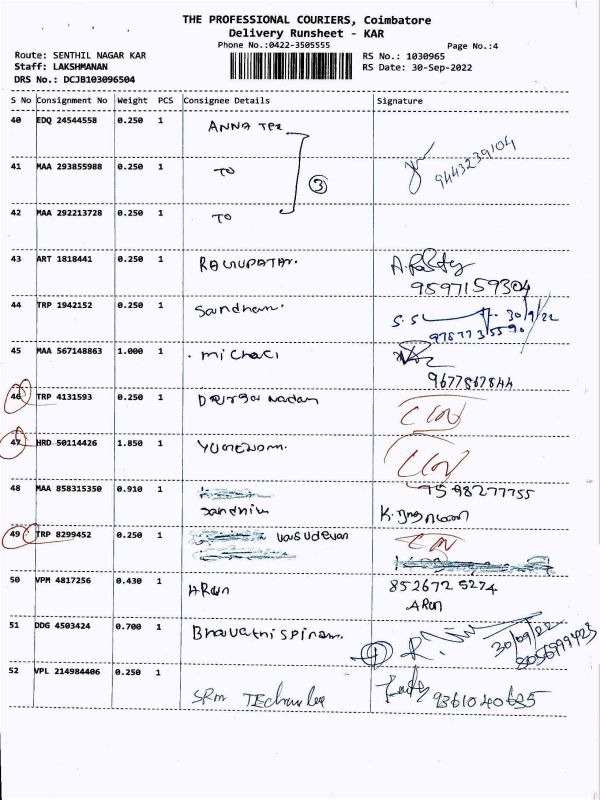 THE PROFESSIONAL COURIERS, Coimbatore
Delivery Runsheet - KAR
Phone No.:0422-3505555
Page No.:4
Route: SENTHIL NAGAR KAR
RS No.: 1030965
Staff: LAKSHMANAN
RS Date: 30-Sep-2022
DRS No.: DCJB103096504
S No Consignment No Weight PCS Consignee Details Signature
40 EDQ 24544558 0.250 1 ANNA
41 MAA 293855988 0.250 1 TO 9443239104
3
42 MAA 292213728 0.250 1 TO
43 ART 1818441 0.250 1
9597159304
44 TRP 1942152 0.250 1 30/9/22
45 MAA 567148863 1.000 1
9677867844
46 TRP 4131593 0.250 1
47 HRD 50114426 1.850 1
48 MAA 858315350 0.910 1 7598277755
49 TRP 8299452 0.250 1 vasudevan
50 VPM 4817256 0.430 1 ARUN 852672 5274
ARUN
51 DDG 4503424 0.700 1 30/09/22
8056999423
52 VPL 214984406 0.250 1 SRM 9361040625